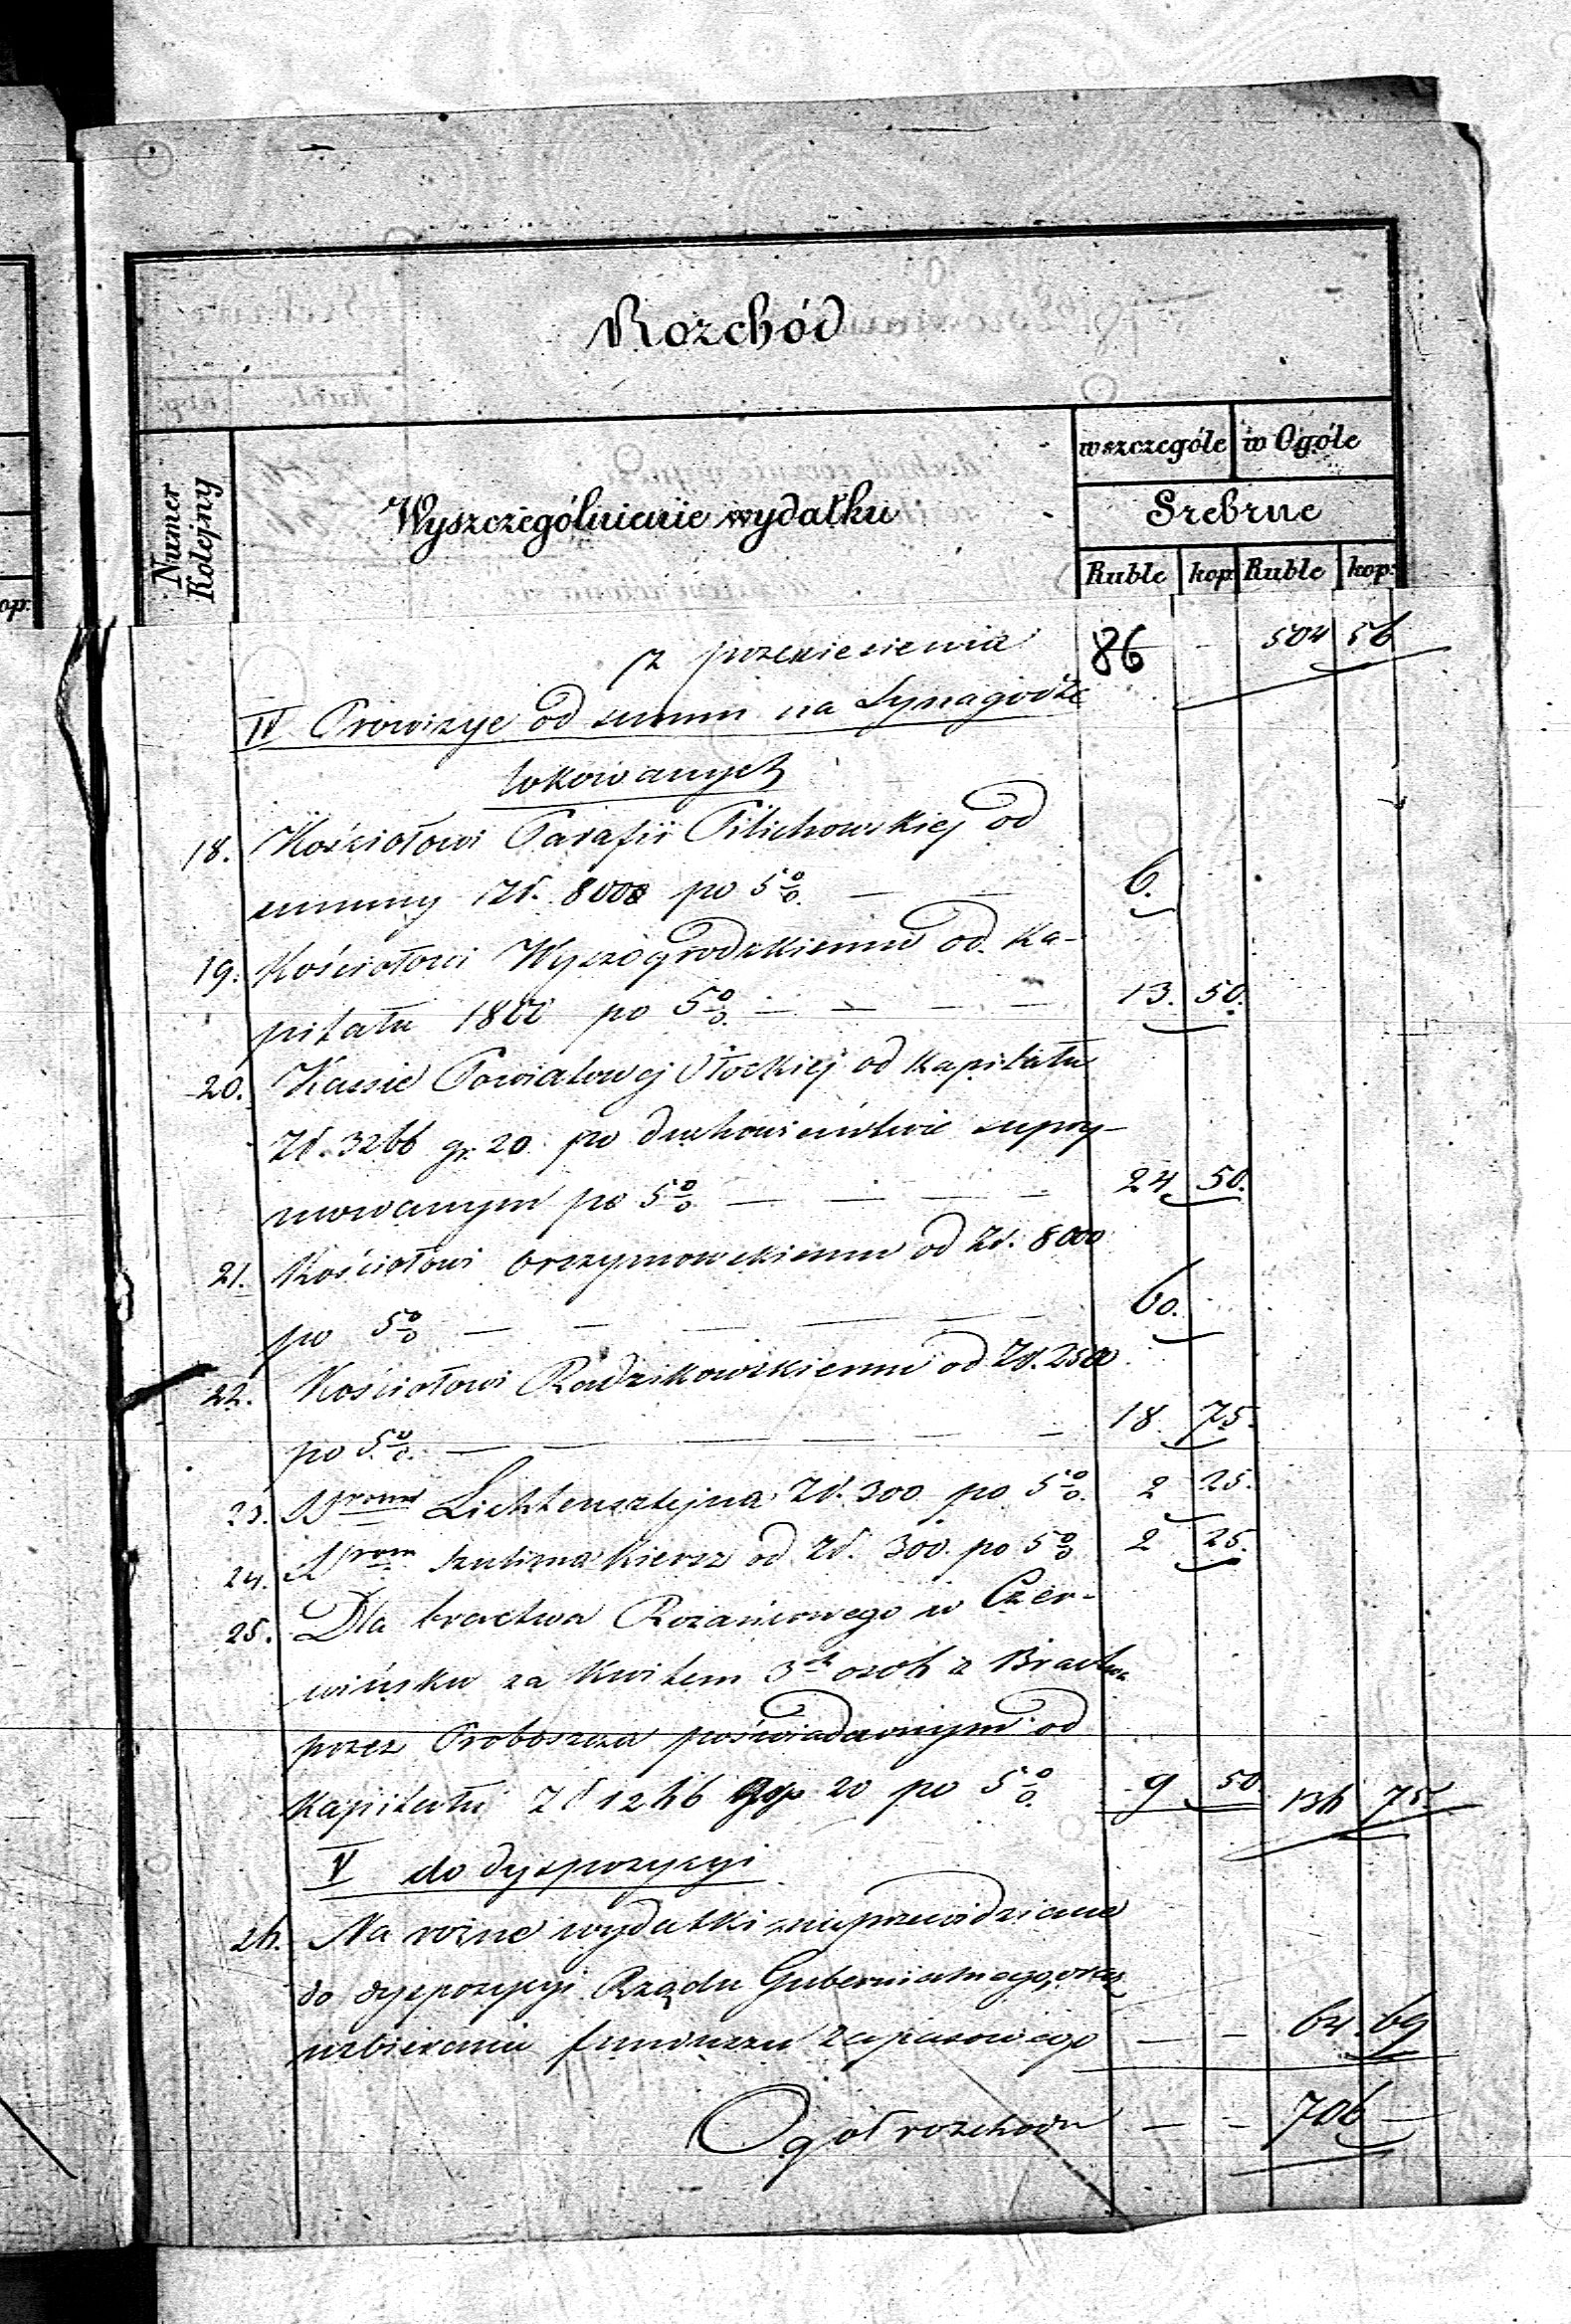 Rozchód
Numer Kolejny
Wyszczególnienie wydatku
w szczególe w Ogóle
Srebrne
Ruble kop: Ruble kop:
z przeniesienia 86 - 504 56
IV Prowizye od summ na Synagodze
lokowanych
18. Kościołowi Parafii Pilichowskiej od
summy Zł. 800 po 5% — — 6.
19. Kościołowi Wyszogrodzkiemu od ka-
pitału 1800 po 5% — — — — 13. 50.
20. Kassie Powiatowej Płockiej od kapitału
Zł. 3266 gr. 20 po duchowieństwie supry-
mowanym po 5% — — — — 24 50.
21. Kościołowi Orszymowskiemu od Zł. 8000
po 5% — — — — — 60.
22. Kościołowi Radzikowskiemu od Zł. 2500
po 5% — — — — — — 18. 75.
23. Lichtensztejna Zł. 300 po 5% 2 25.
24. Szulima Hersz od Zł. 300. po 5% 2 25.
25. Dla bractwa Rożańcowego w Czer-
wińsku za kwitem 3ch osób z Bractwa
przez Proboszcza poświadczonym od
kapitału Zł 1266 gr 20 po 5% 9 50 136 75.
V do dyspozycyi
26. Na rożne wydatki nieprzewidziane
do dyspozycyi Rządu Gubernialnego, oraz
uzbierania funduszu zapasowego — — 64. 69
Ogół rozchodu — — 706 —